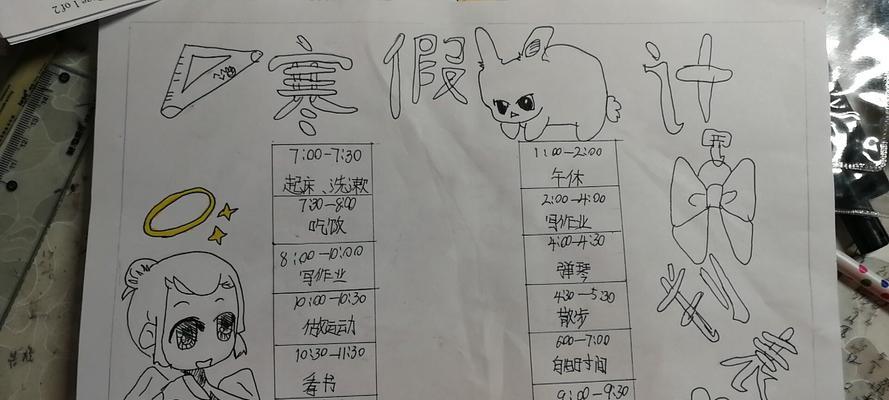 寒假计划
7:00-7:30
起床、洗漱
7:30-8:00
吃饭
8:00-10:00
写作业
10:00-10:30
做运动
10:30-11:30
看书
1:00-2:00
午休
2:00-4:00
写作业
4:00-4:30
弹琴
4:30-5:30
散步
6:00-7:00
自由时间
9:00-9:30